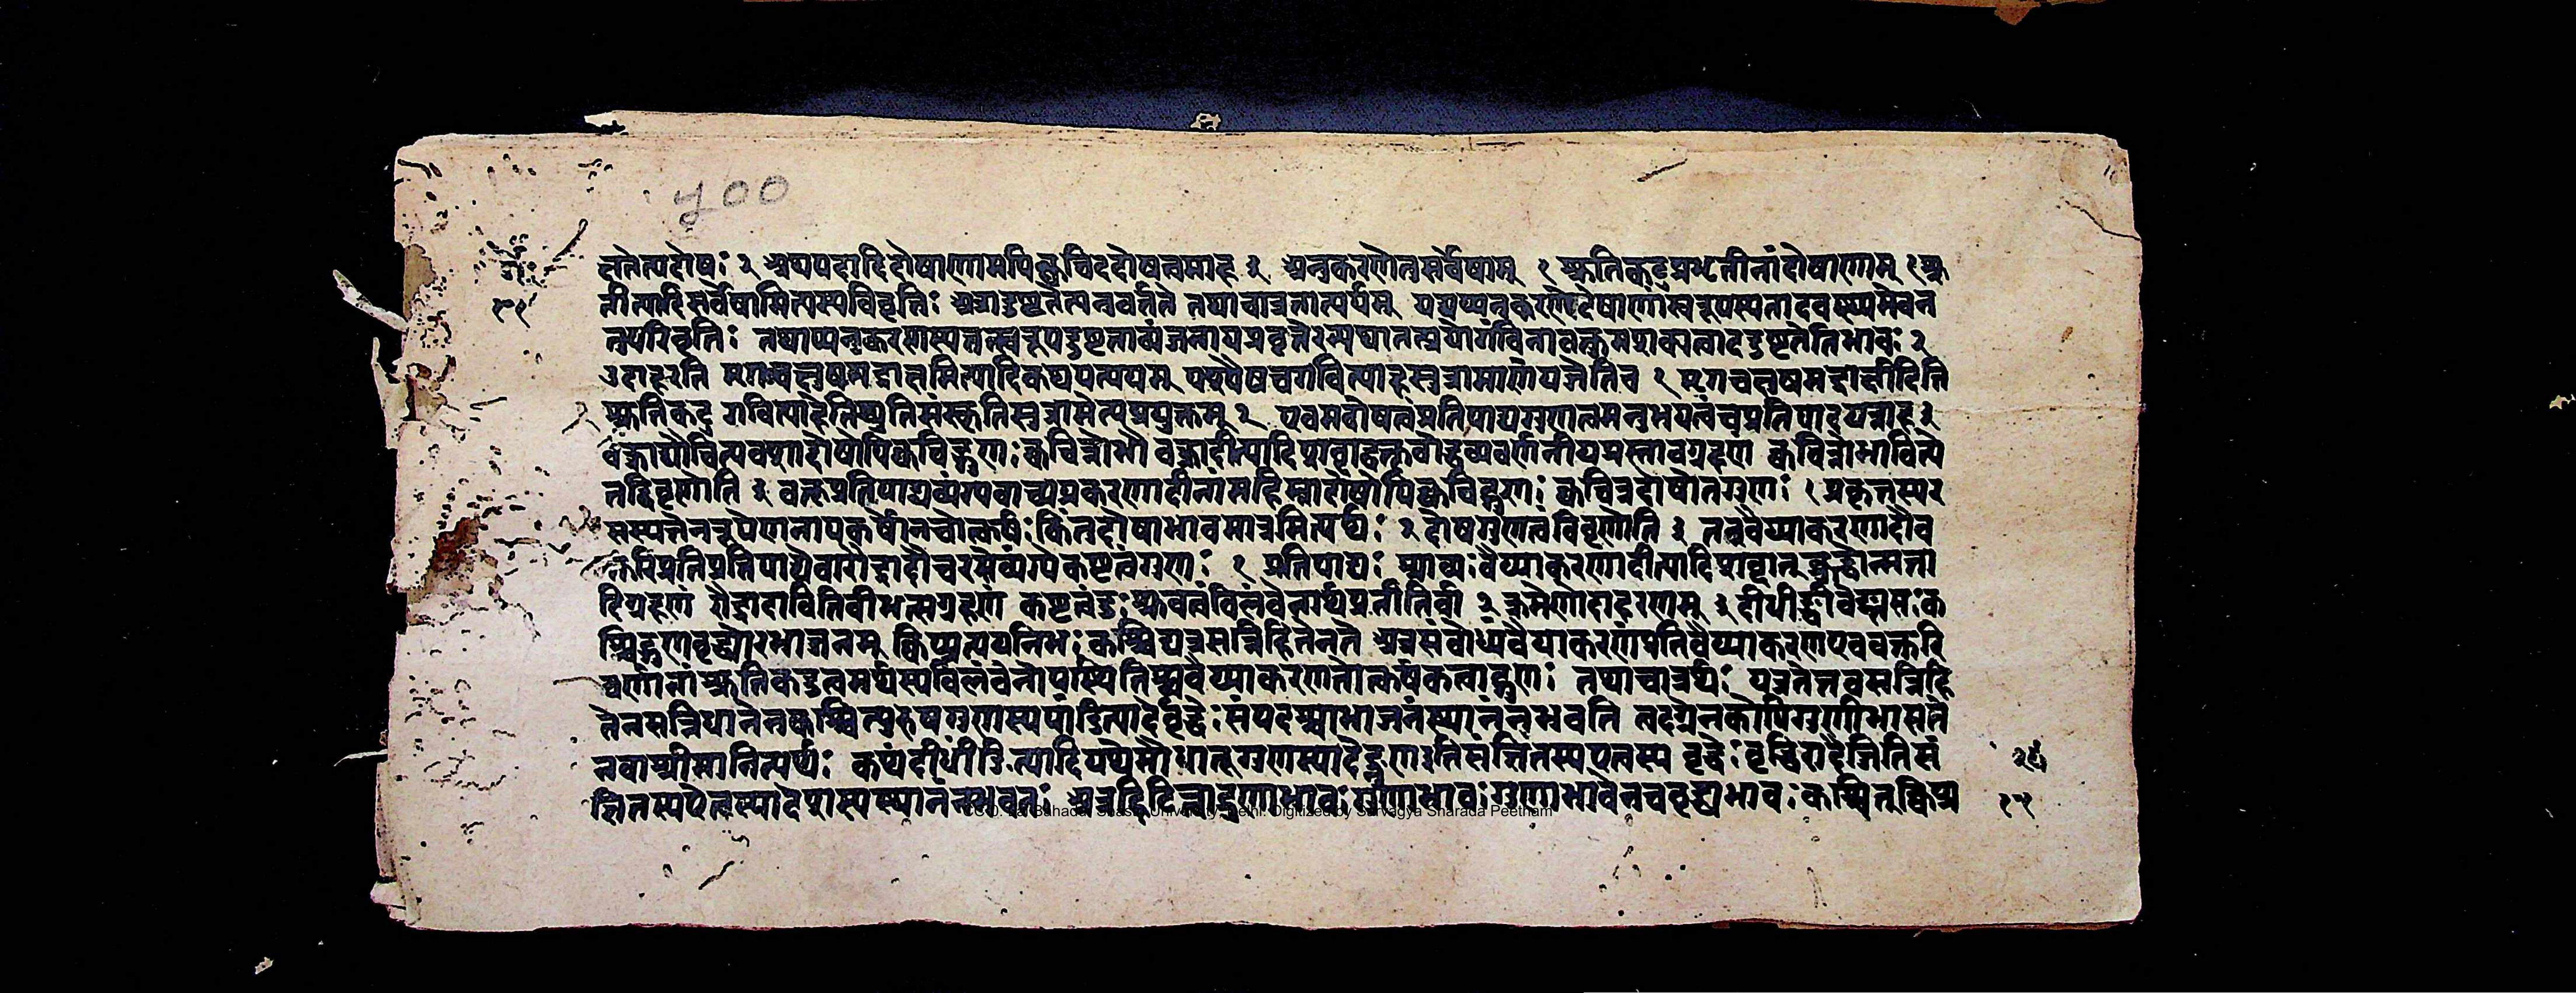 ५००
हतेत्यदोषः २ अथपदादिदोषाणामपिक्वचिददोषत्वमाह ३ अनुकरणेतुसर्वेषाम् १ श्रुतिकटुप्रभृतीनांदोषाणाम् १ श्रु
तीत्यादिसर्वेषामित्यस्यविवृतिः अत्रादुष्टतेत्यनुवर्तते तथाचात्रतात्पर्यम् यद्यप्यनुकरणेदोषाणांस्वरूपस्यतादवस्थ्यमेवन
तुपरिवृत्तिः तथाप्यनुकरणस्यतत्स्वरूपदुष्टताव्यंजनायप्रवृत्तेरन्यथातत्प्रयोगंविनावक्तुमशक्यत्वाददुष्टतेतिभावः २
उदाहरति मृगचक्षुषमद्राक्षमित्यादिकथयत्ययम् पश्यैषचगवित्याहसुत्रामाणंयजेतिच १ मृगचक्षुषमद्राक्षीदिति
श्रुतिकटु गवित्याहेतिच्युतिसंस्कृतिसुत्रामेत्यप्रयुक्तम् २ एवमदोषत्वंप्रतिपाद्यगुणत्वमनुभयत्वंचप्रतिपादयन्नाह ३
वक्त्राद्यौचित्यवशाद्दोषोपिक्वचिद्गुणः क्वचिन्नोभौ वक्त्रादीत्यादिशब्दाद्वक्तृबोद्धव्यवर्णनीयप्रस्तावग्रहणं क्वचिन्नोभावित्ये
तद्विवृणोति ३ वक्तृप्रतिपाद्यव्यंग्यवाच्यप्रकरणादीनांमहिम्नादोषोपिक्वचिद्गुणः क्वचिन्नदोषोनगुणः १ प्रकृतस्यर
सस्यतेनरूपेणनापकर्षोनचोत्कर्षः किंतुदोषाभावमात्रमित्यर्थः २ दोषगुणत्वंविवृणोति ३ तत्रवैय्याकरणादौव
क्तरिप्रतिप्रतिपाद्येवारौद्रादौचरसेव्यंग्येकष्टत्वंगुणः १ प्रतिपाद्यः श्राव्यः वैय्याकरणादीत्यादिशब्दात् क्रुद्धोन्मत्ता
दिग्रहणं रौद्रादावितिबीभत्सग्रहणं कष्टत्वंदुःश्रवत्वंविलंबेनार्थप्रतीतिर्वा २ क्रमेणोदाहरणम् ३ दीधीङ्वेवीङ्समःक
श्चिद्गुणवृद्ध्योरभाजनम् क्विप्प्रत्ययनिभः कश्चिद्यत्रसन्निहितेनते अत्रसंबोध्यवैयाकरणंप्रतिवैय्याकरणएववक्तरि
वर्णानांश्रुतिकटुत्वमर्थस्यविलंबेनोपस्थितिश्चवैय्याकरणतोत्कर्षकत्वाद्गुणः तथाचात्रार्थः यत्रतेत्तवसन्निहि
तेनसन्निधानेनकश्चित्पुरुषगुणस्यपांडित्यादेर्वृद्धेः संपदश्चाभाजनंस्थानंनभवति तदग्रेनकोपिगुणीभासते
नवाश्रीमानित्यर्थः कथंदीधीङित्यादियथेमौधातूगुणस्यादेङ्गुणःइतिसंज्ञितस्यएत्वस्य वृद्धेः वृद्धिरादैजितिसं
ज्ञितस्यऐत्वस्यादेशस्यस्थानंनभवतः
CC-0. Lal Bahadur Shastri University, Delhi. Digitized by Sarvagya Sharada Peetham